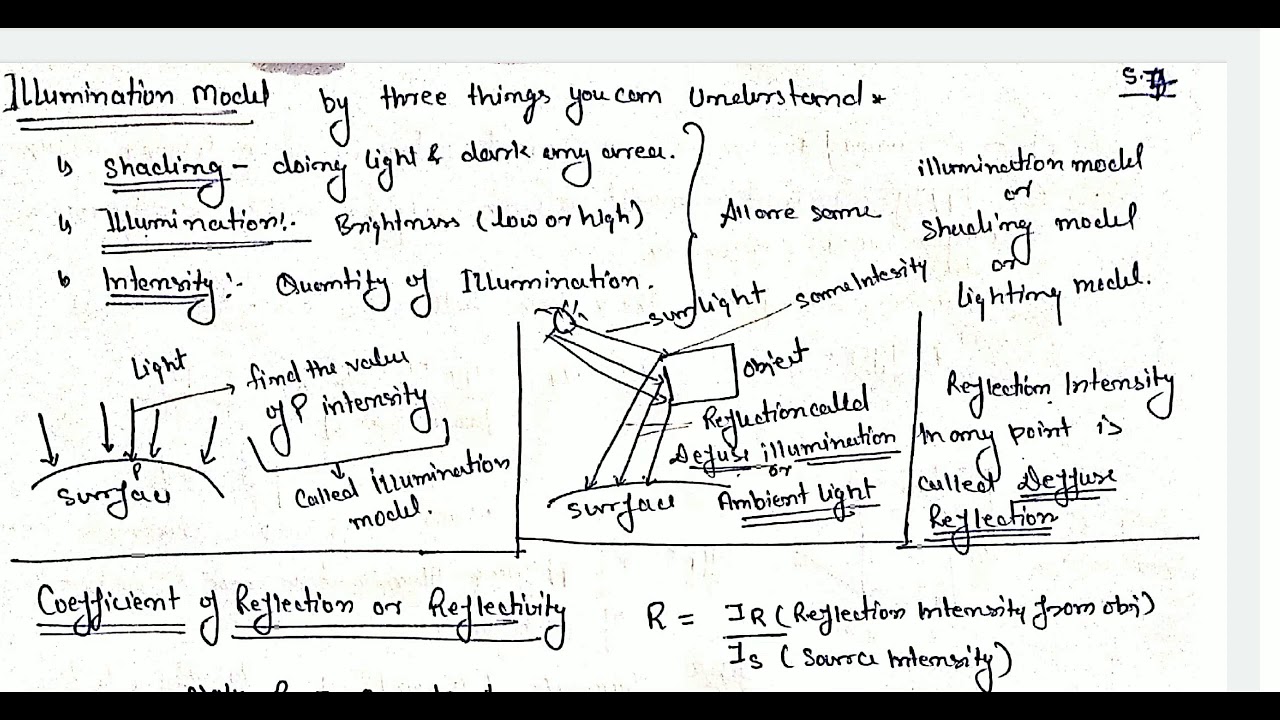 Illumination Model by three things you can Understand *
Shading - doing light & dark any area.
Illumination:- Brightness (low or high)
Intensity:- Quantity of Illumination.
All are same
illumination model
or
Shading model
or
lighting model.
Light
find the value
of P intensity
P
Surface
Called illumination
model.
sun light
same Intesity
object
Refluction called
Defuse illumination
or
Ambient light
surface
Reflection Intensity
In any point is
called Deffuse
Reflection
Coefficient of Reflection or Reflectivity
R = IR (Reflection Intensity from obj)
IS (Source Intensity)